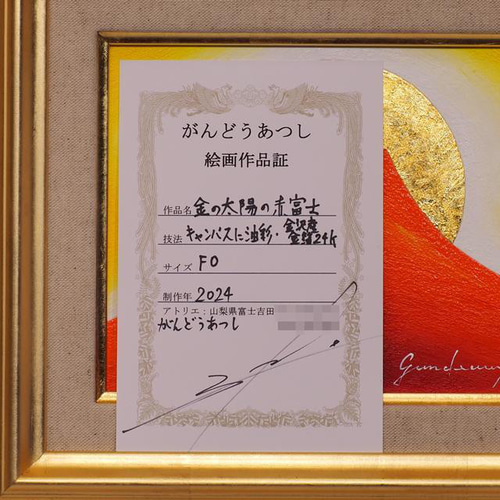 がんどうあつし
絵画作品証
作品名 金の太陽の赤富士
技法 キャンバスに油彩・金沢産金箔24K
サイズ F0
制作年 2024
アトリエ:山梨県富士吉田
がんどうあつし